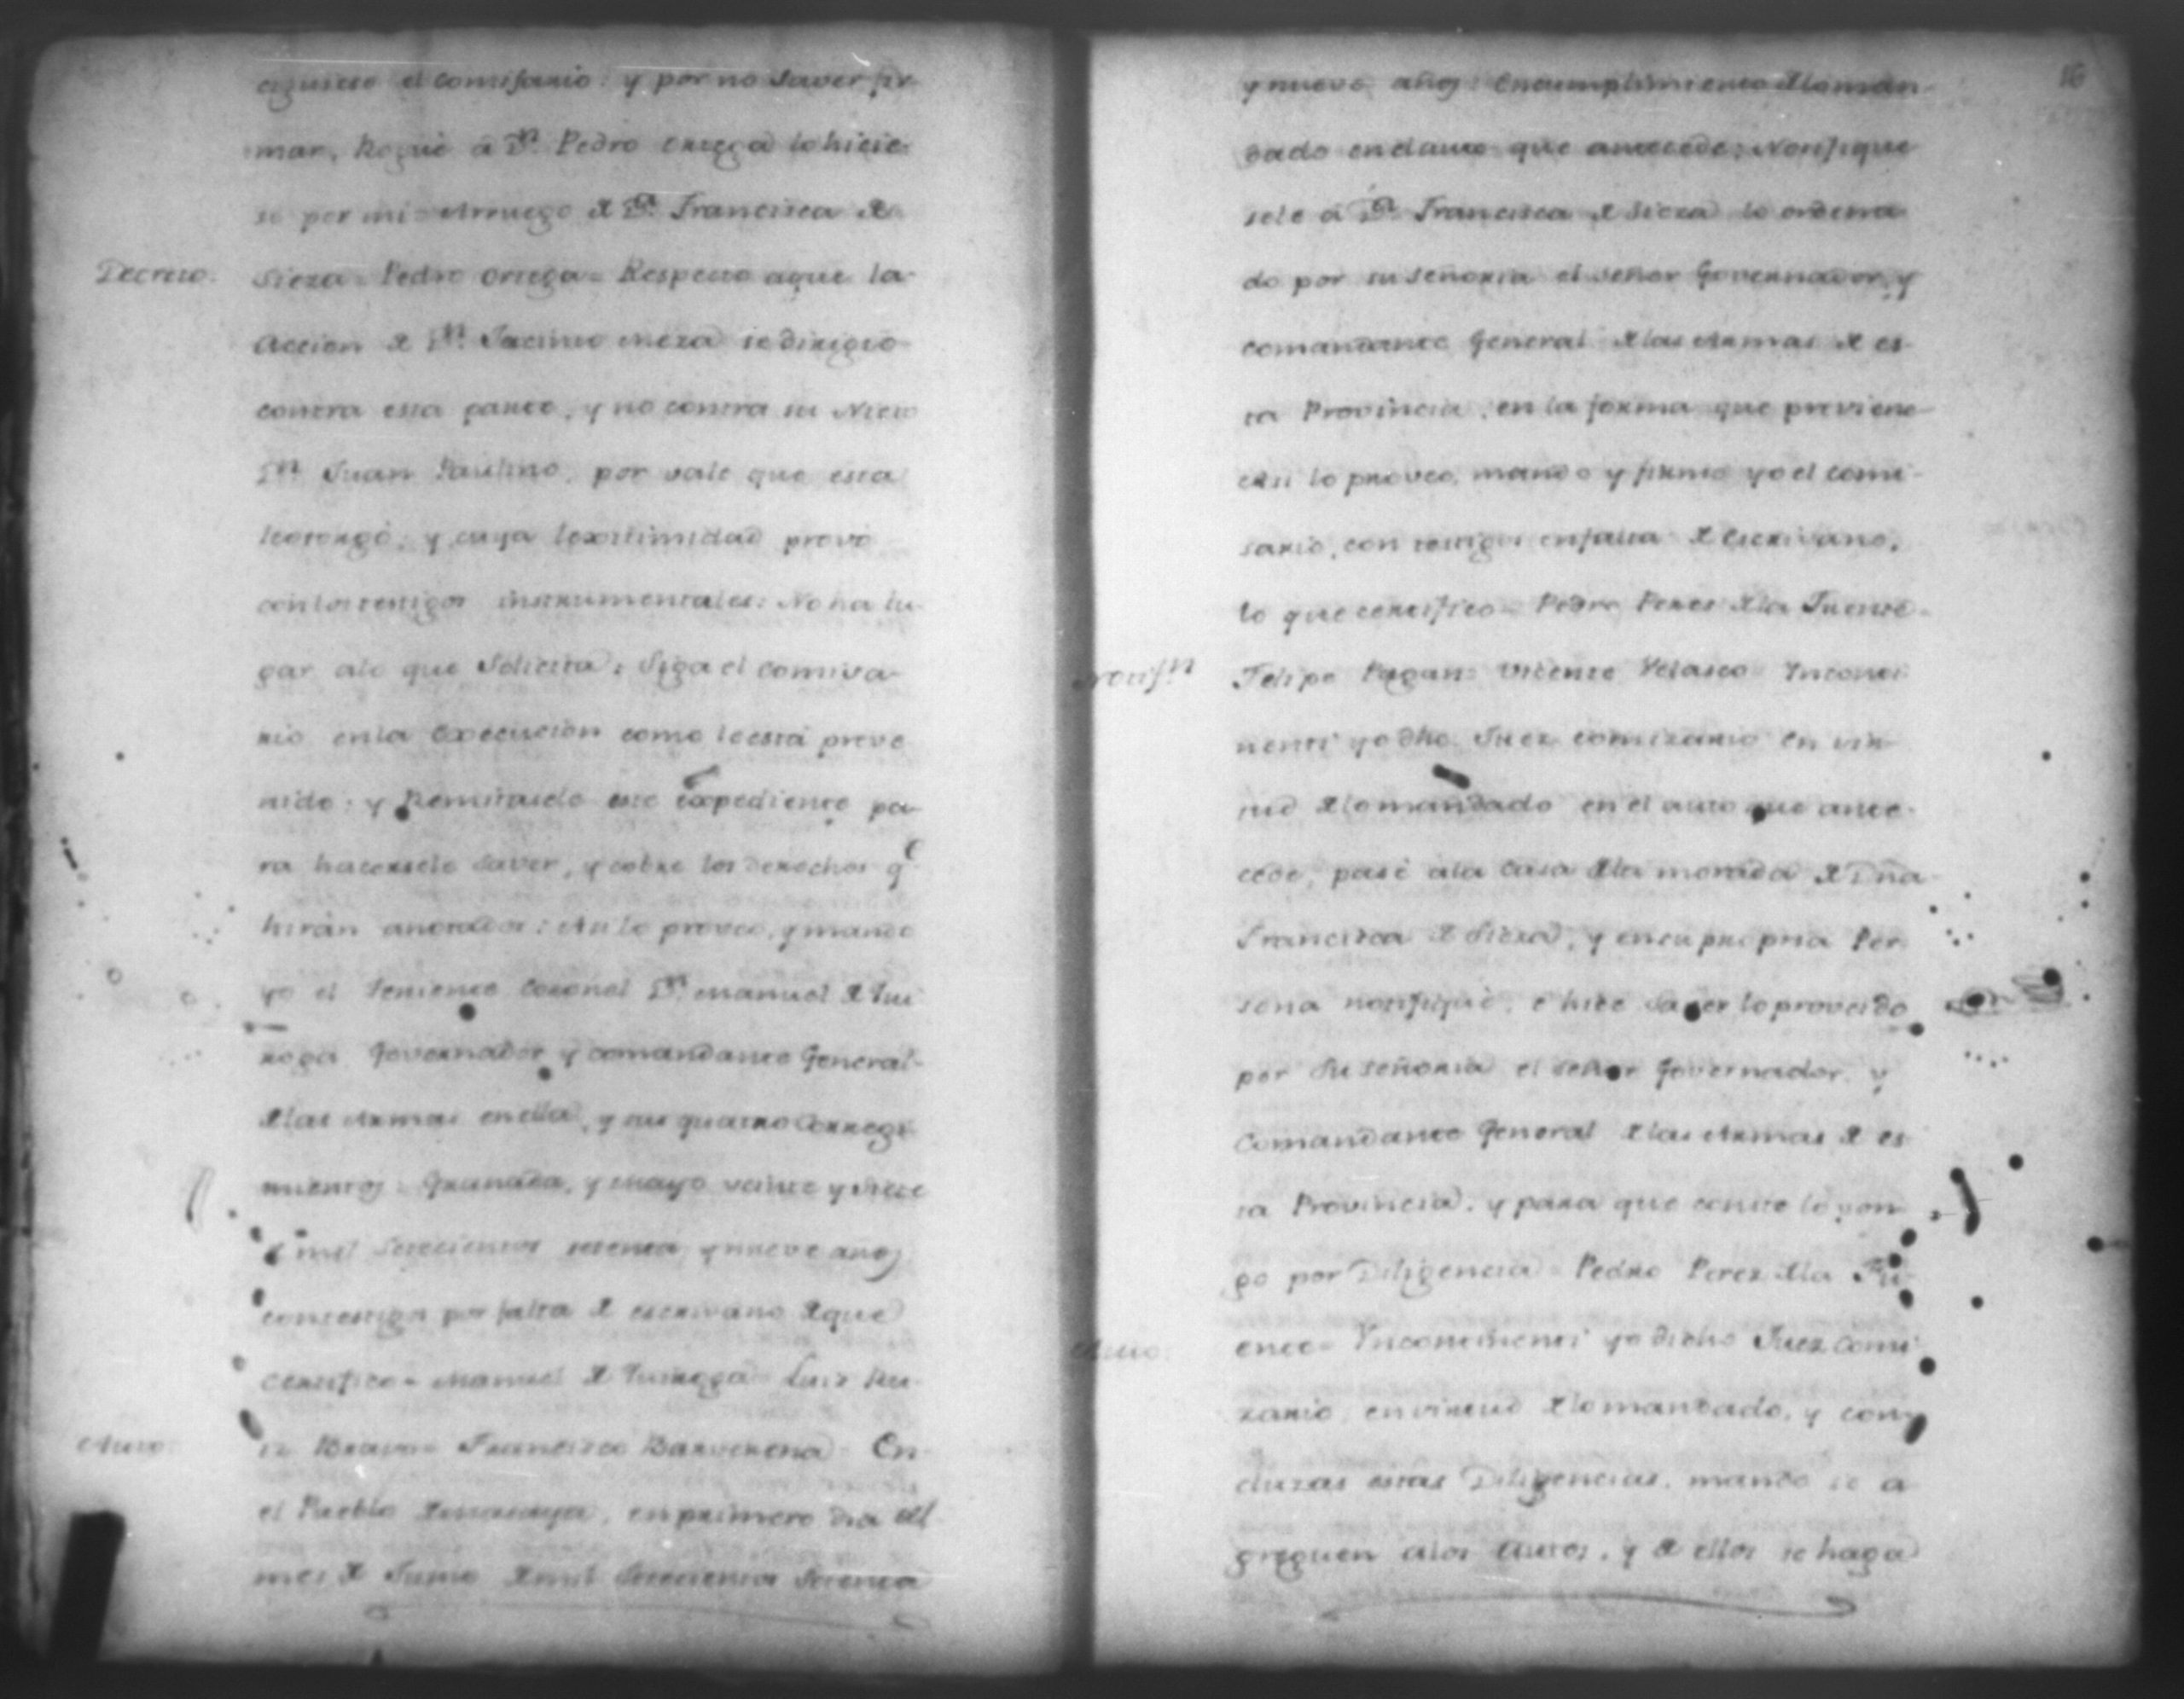 el comisario: y por no Saver fir-
mar, Rogué á Dn. Pedro Ortega lo hicie-
se por mi= Arruego de Da. Francisca de
Decreto.
Sieza= Pedro Ortega= Respecto aque la
Accion de Dn. Jacinto Meza se dirigio
contra esta parte, y no contra su Nieto
Dn. Juan Paulino, por vale que esta
leotorgó, y cuya lexitimidad provó
con los testigos instrumentales: No ha lu-
gar alo que Solicita: Siga el comisa-
rio en la Execucion como leesta preve
nido: y Remitasele este expediente pa-
ra hacersele Saver, y cobre los derechos qe.
hirán anotados: Asi lo proveo, y mando
yo el Teniente Coronel Dn. Manuel de Qui
roga Governador y comandante General
delas Armas en ella, y sus quatro Corregi-
mientos: Granada, y Mayo veinte y siete
de mil Setecientos setenta y nueve años
con testigos por falta de escrivano de que
Certifico= Manuel de Quiroga= Luis Ru-
Auto.
iz Bravo= Francisco Barverena= En
el Pueblo , en primero dia del
mes de Junio de mil Setecientos Setenta
16
y nueve años: En cumplimiento de lo man-
dado en el auto que antecede: Notifique
sele á Da. Francisca de Sieza lo ordena
do por su señoria el señor Governador, y
comandante General delas Armas de es-
ta Provincia, en la forma que previene
asi lo proveo, mando y firmo yo el comi-
sario, con testigos en falta de Escrivano,
lo que certifico= Pedro Peres dela Fuente=
Notifn.
Felipe Pagan= Vicente Velasco= Yncontí
nenti yo dho. Juez comizario en vir-
tud de lo mandado en el auto que ante-
cede, pasé ala Casa dela morada de Dña
Francisca de Sieza, y en su propria Per-
sona notifiqué, é hice Saver lo proveido
por Su señoria el señor Governador, y
Comandante General delas Armas de es-
ta Provincia, y para que conste lo pon-
go por Diligencia= Pedro Perez dela Fu-
Auto.
ente= Yncontinenti yo dicho Juez Comi
zario, en virtud de lo mandado, y con-
cluzas estas Diligencias, mando se a-
greguen alos Autos, y de ellos se haga